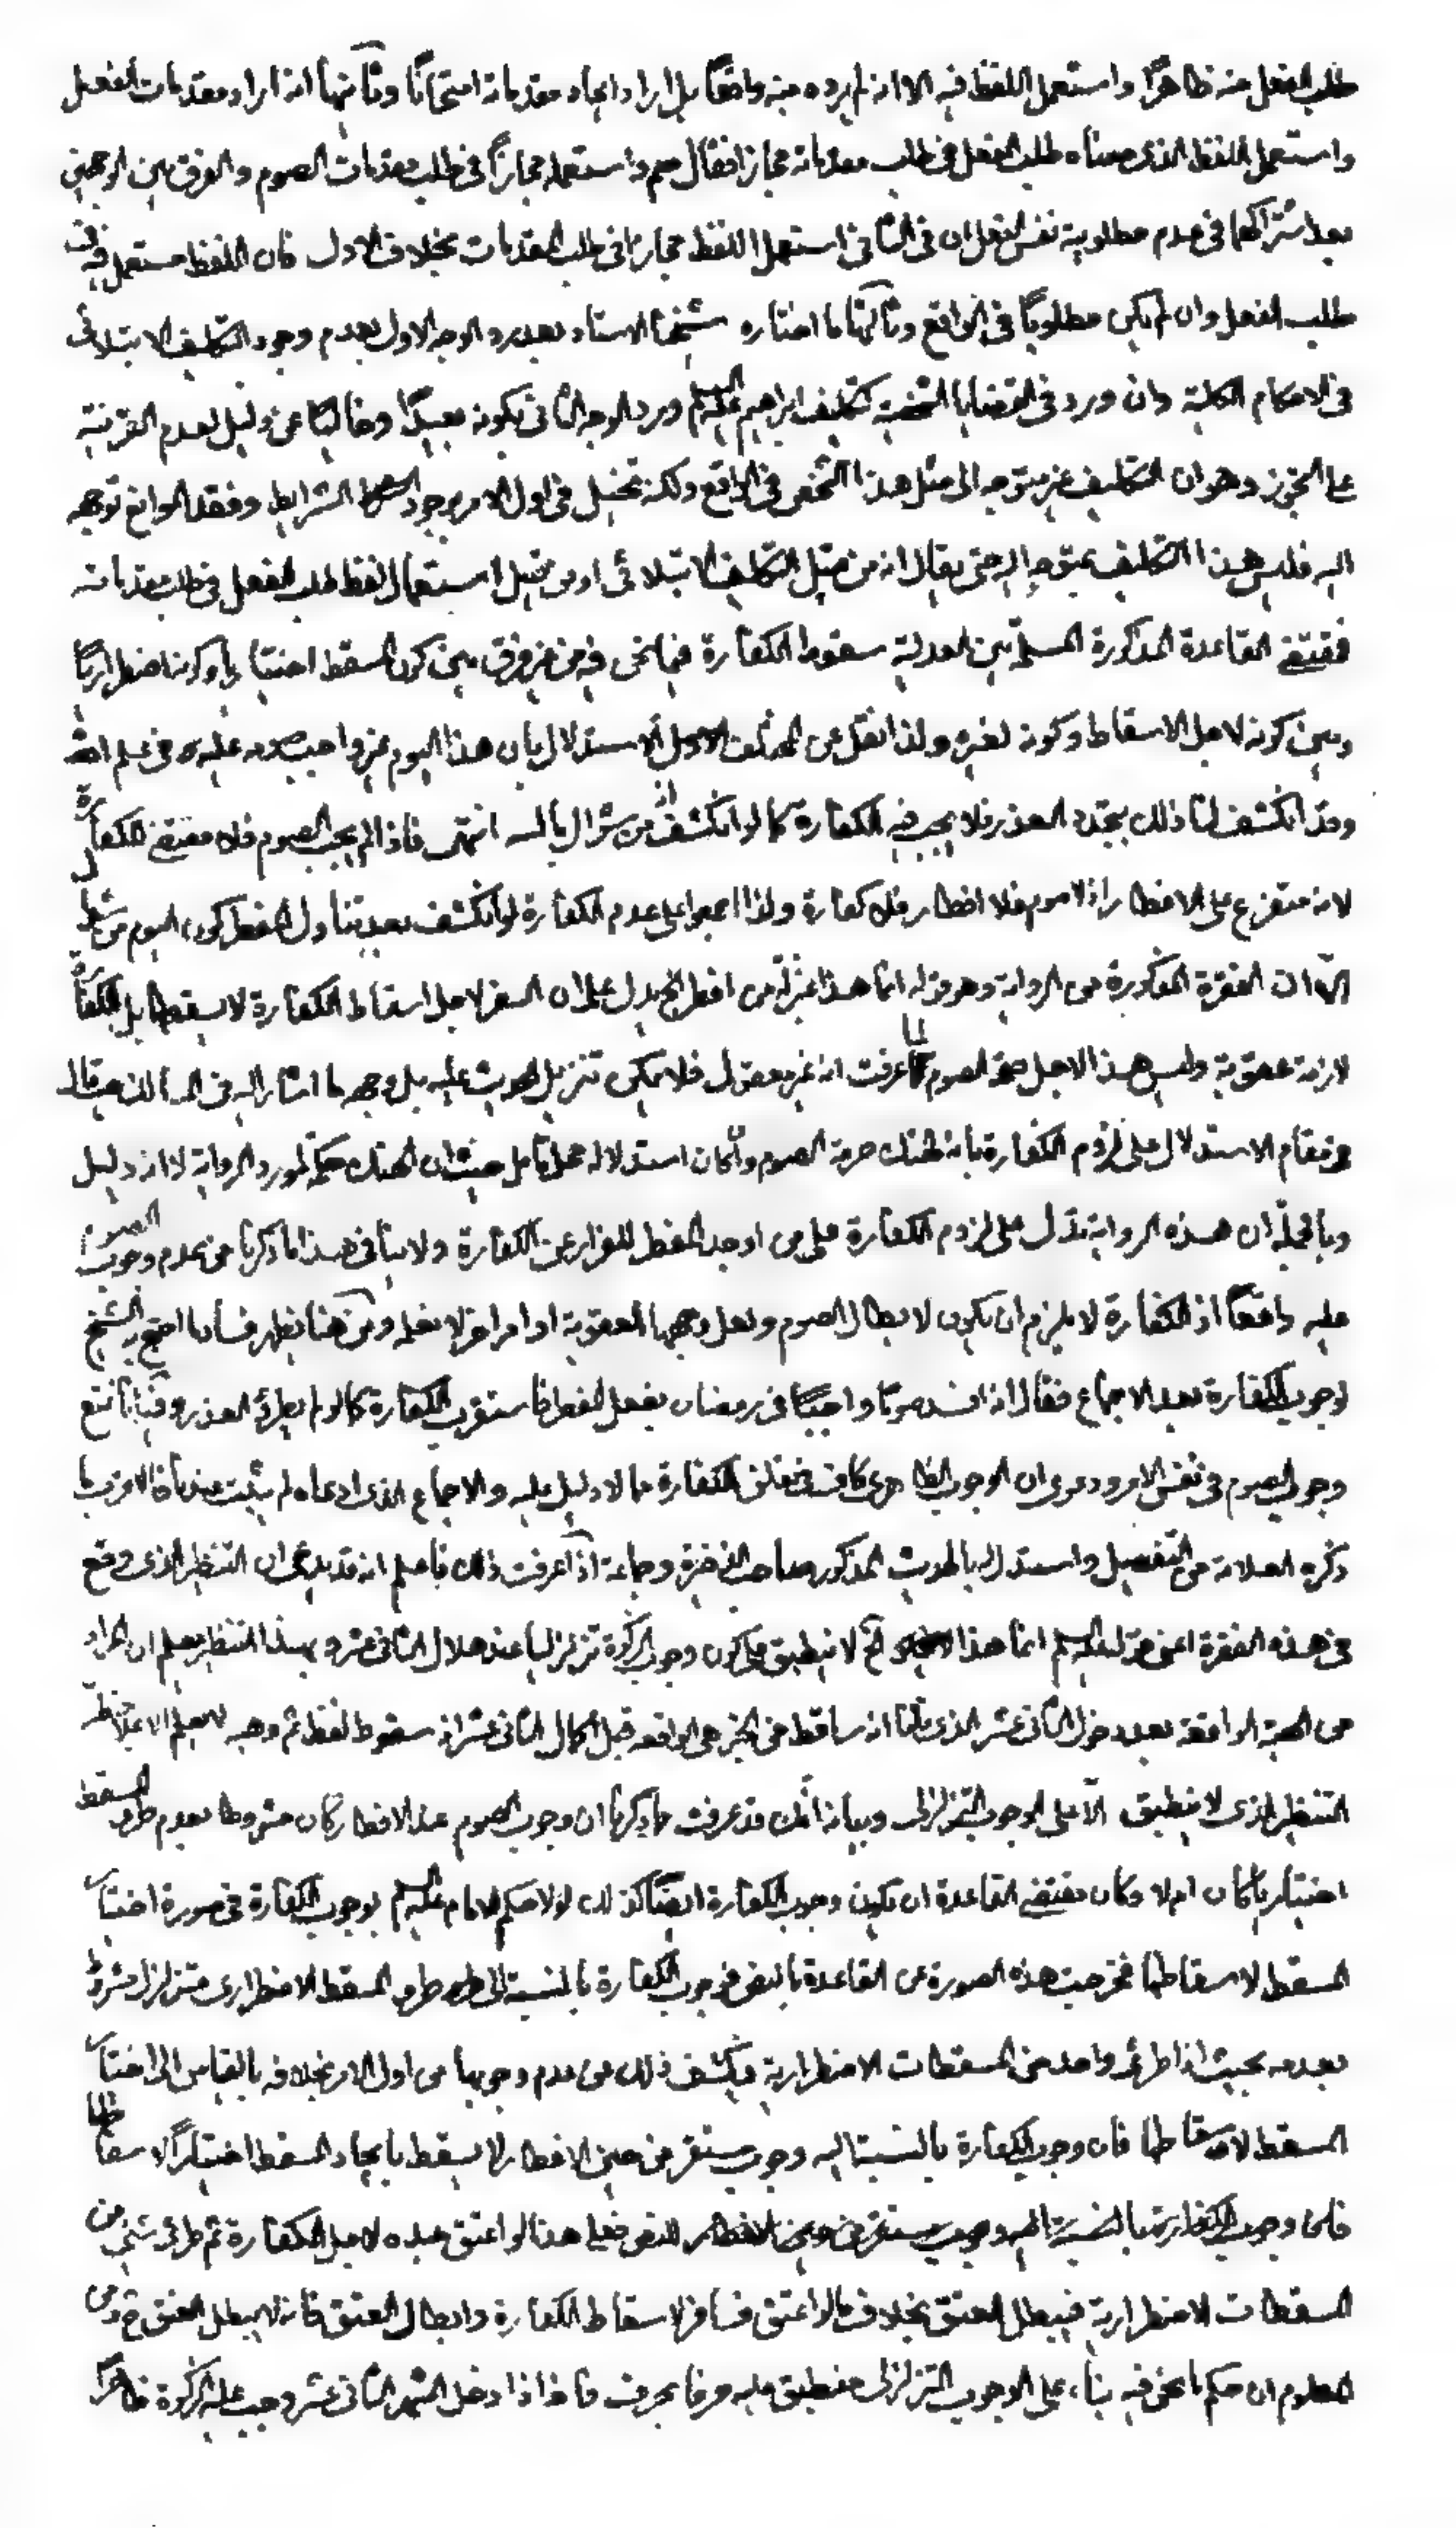 طلب الفعل منه ظاهرًا واستعمل اللفظ فيه الا انه لم يرده منه واقعًا بل اراد ايجاد مقدماته امتحانًا وثانيهما انه اراد مقدمات الفعل
واستعمل اللفظ الذى معناه طلب الفعل فى طلب مقدماته مجازا فقال صم واستعمله مجازًا فى طلب مقدمات الصوم والفرق بين الوجهين
بعد اشتراكهما فى عدم مطلوبية نفس الفعل ان فى الثانى استعمل اللفظ مجازا فى طلب المقدمات بخلاف الاول فان اللفظ مستعمل فيه فى
طلب الفعل وان لم يكن مطلوبًا فى الواقع وثالثها ما اختاره شيخنا الاستاد بعد رد الوجه الاول بعدم وجود التكليف الابتلائى
فى الاحكام الكلية وان ورد فى القضايا الشخصية كتكليف ابراهيم عليه السلم ورد الوجه الثانى بكونه بعيدًا وخاليًا عن دليل لعدم القرينة
على التجوز وهو ان التكليف غير متوجه الى مثل هذا الشخص فى الواقع ولكنه تخيل فى اول الامر بوجود الشرايط وفقد الموانع توجهه
اليه فليس هذا التكليف بمتوجه اليه حتى يقال انه من قبيل التكليف الابتلائى او من قبيل استعمال لفظ طلب الفعل فى طلب مقدماته
فمقتضى القاعدة المذكورة المسلمة بين العدلية سقوط الكفارة فيما نحن فيه من غير فرق بين كون المسقط اختياريا وكونه اضطراريًا
وبين كونه لاجل الاسقاط وكونه لغيره ولذا نقل عن المختلف الاستدلال بان هذا اليوم غير واجب صومه عليه فى علم الله
وقد انكشف لنا ذلك بتجدد العذر فلا يجب فيه الكفارة كما لو انكشف انه من شوال بالبينه انتهى فاذا لم يجب الصوم فلا مقتضى للكفارة
لانه متفرع على الافطار اذ لا صوم فلا افطار فلا كفارة ولذا اجمعوا على عدم الكفارة لو انكشف بعد تناول المفطر كون اليوم من شوال
الّا ان الفقرة المذكورة من الرواية وهو قوله انما هذا بمنزلة من افطر الخ يدل على ان السفر لاجل اسقاط الكفارة لا يسقطها بل الكفارة
لازمة عقوبة وليس هذا لاجل صحة الصوم لما عرفت انه غير معقول فلا يمكن تنزيل الحديث عليه بل وجهه ما اشار اليه فى حيث قال
فى مقام الاستدلال على لزوم الكفارة بانه لهتك حرمة الصوم وان كان استدلاله محل تأمل حيث ان الهتك حكمة لمورد الرواية لا انه دليل
وبالجملة ان هذه الرواية تدل على لزوم الكفارة على من اوجد المفطر للفرار عن الكفارة ولا ينافى هذا ما ذكرنا من عدم وجوب الصوم
عليه واقعًا اذ الكفارة لا يلزم ان يكون لابطال الصوم ولعل وجهها العقوبة او امر اخر لا نعلمه ومن هنا يظهر فساد ما احتج به الشيخ
لوجوب الكفارة بعد الاجماع فقال انه افسد صومًا واجبًا فى رمضان بفعل المفطر فاستقرت الكفارة كما لو لم يطرء العذر وفيه انا نمنع
وجوب الصوم فى نفس الامر ودعوى ان الوجوب الظاهرى كاف فى تعلق الكفارة مما لا دليل عليه والاجماع الذى ادعاه لم يثبت عندنا فالاقرب ما
ذكره العلامة من التفصيل واستدل اليه بالحديث المذكور صاحب الذخيرة وجماعة اذا عرفت ذلك فاعلم انه قد يدعى ان التنظير الذى وقع
فى هذه الفقرة اعنى قوله عليه السلم انما هذا الخ لا ينطبق على كون وجوب الزكوة تزلزليا عند هلال الثانى عشر وبهذا التنظير يعلم ان المراد
من الهبة الواقعة بعد دخول الثانى عشر الذى قلنا انه ساقط من الخبر هى الواقعه قبل اكمال الثانى عشر انه سقوط لفظ ثم وهبه
التنظير الذى لا ينطبق الّا على الوجوب التزلزلى وبيانه انّك قد عرفت مما ذكرنا ان وجوب الصوم عند الافطار كان مشروطا بعدم طرو المسقط
اختياريا كان ام لا وكان مقتضى القاعدة ان يكون وجوب الكفارة ايضًا كذلك لولا حكم الامام عليه السلم بوجوب الكفارة فى صورة اختيار
المسقط لاسقاطها فخرجت هذه الصورة عن القاعدة بالنص فوجوب الكفارة بالنسبة الى طرو المسقط الاضطرارى متزلزل مشروط
بعدمه بحيث اذا طرء واحد من المسقطات الاضطرارية فيكشف ذلك من عدم وجوبها من اول الامر بخلافه بالقياس الى اختيار
المسقط لاسقاطها فان وجوب الكفارة بالنسبة اليه وجوب مستقر من حين الافطار لا يسقط بايجاد المسقط اختيارًا لاسقاطها
فان وجوب الكفارة بالنسبة اليه وجوب مستقر من حين الافطار للنص فعلى هذا لو اعتق عبده لاجل الكفارة ثم طرء شئ من
المسقطات الاضطرارية فيبطل العتق بخلاف ما لو اعتق فسافر لاسقاط الكفارة وابطال العتق فانه لا يبطل العتق ح ومن
المعلوم ان حكم ما نحن فيه بناء على الوجوب التزلزلى منطبق عليه حرفا بحرف فاذا دخل الشهر الثانى عشر وجب عليه الزكوة ظاهرًا